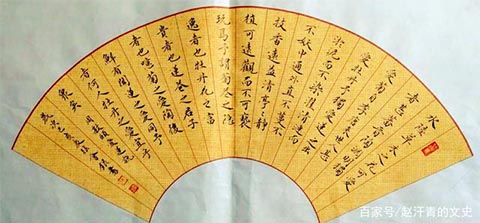 水陸草木之花可愛
者甚蕃晉陶淵明獨
愛菊自李唐來世人甚
愛牡丹予獨愛蓮之出
淤泥而不染濯清漣而
不妖中通外直不蔓不
枝香遠益清亭亭静
植可遠觀而不可褻
玩焉予謂菊花之隱
逸者也牡丹花之富
貴者也蓮花之君子
者也噫菊之愛陶後
鮮有聞蓮之愛同予
者何人牡丹之愛宜乎
衆矣 周敦頤愛蓮說
百家号/赵汗青的文史